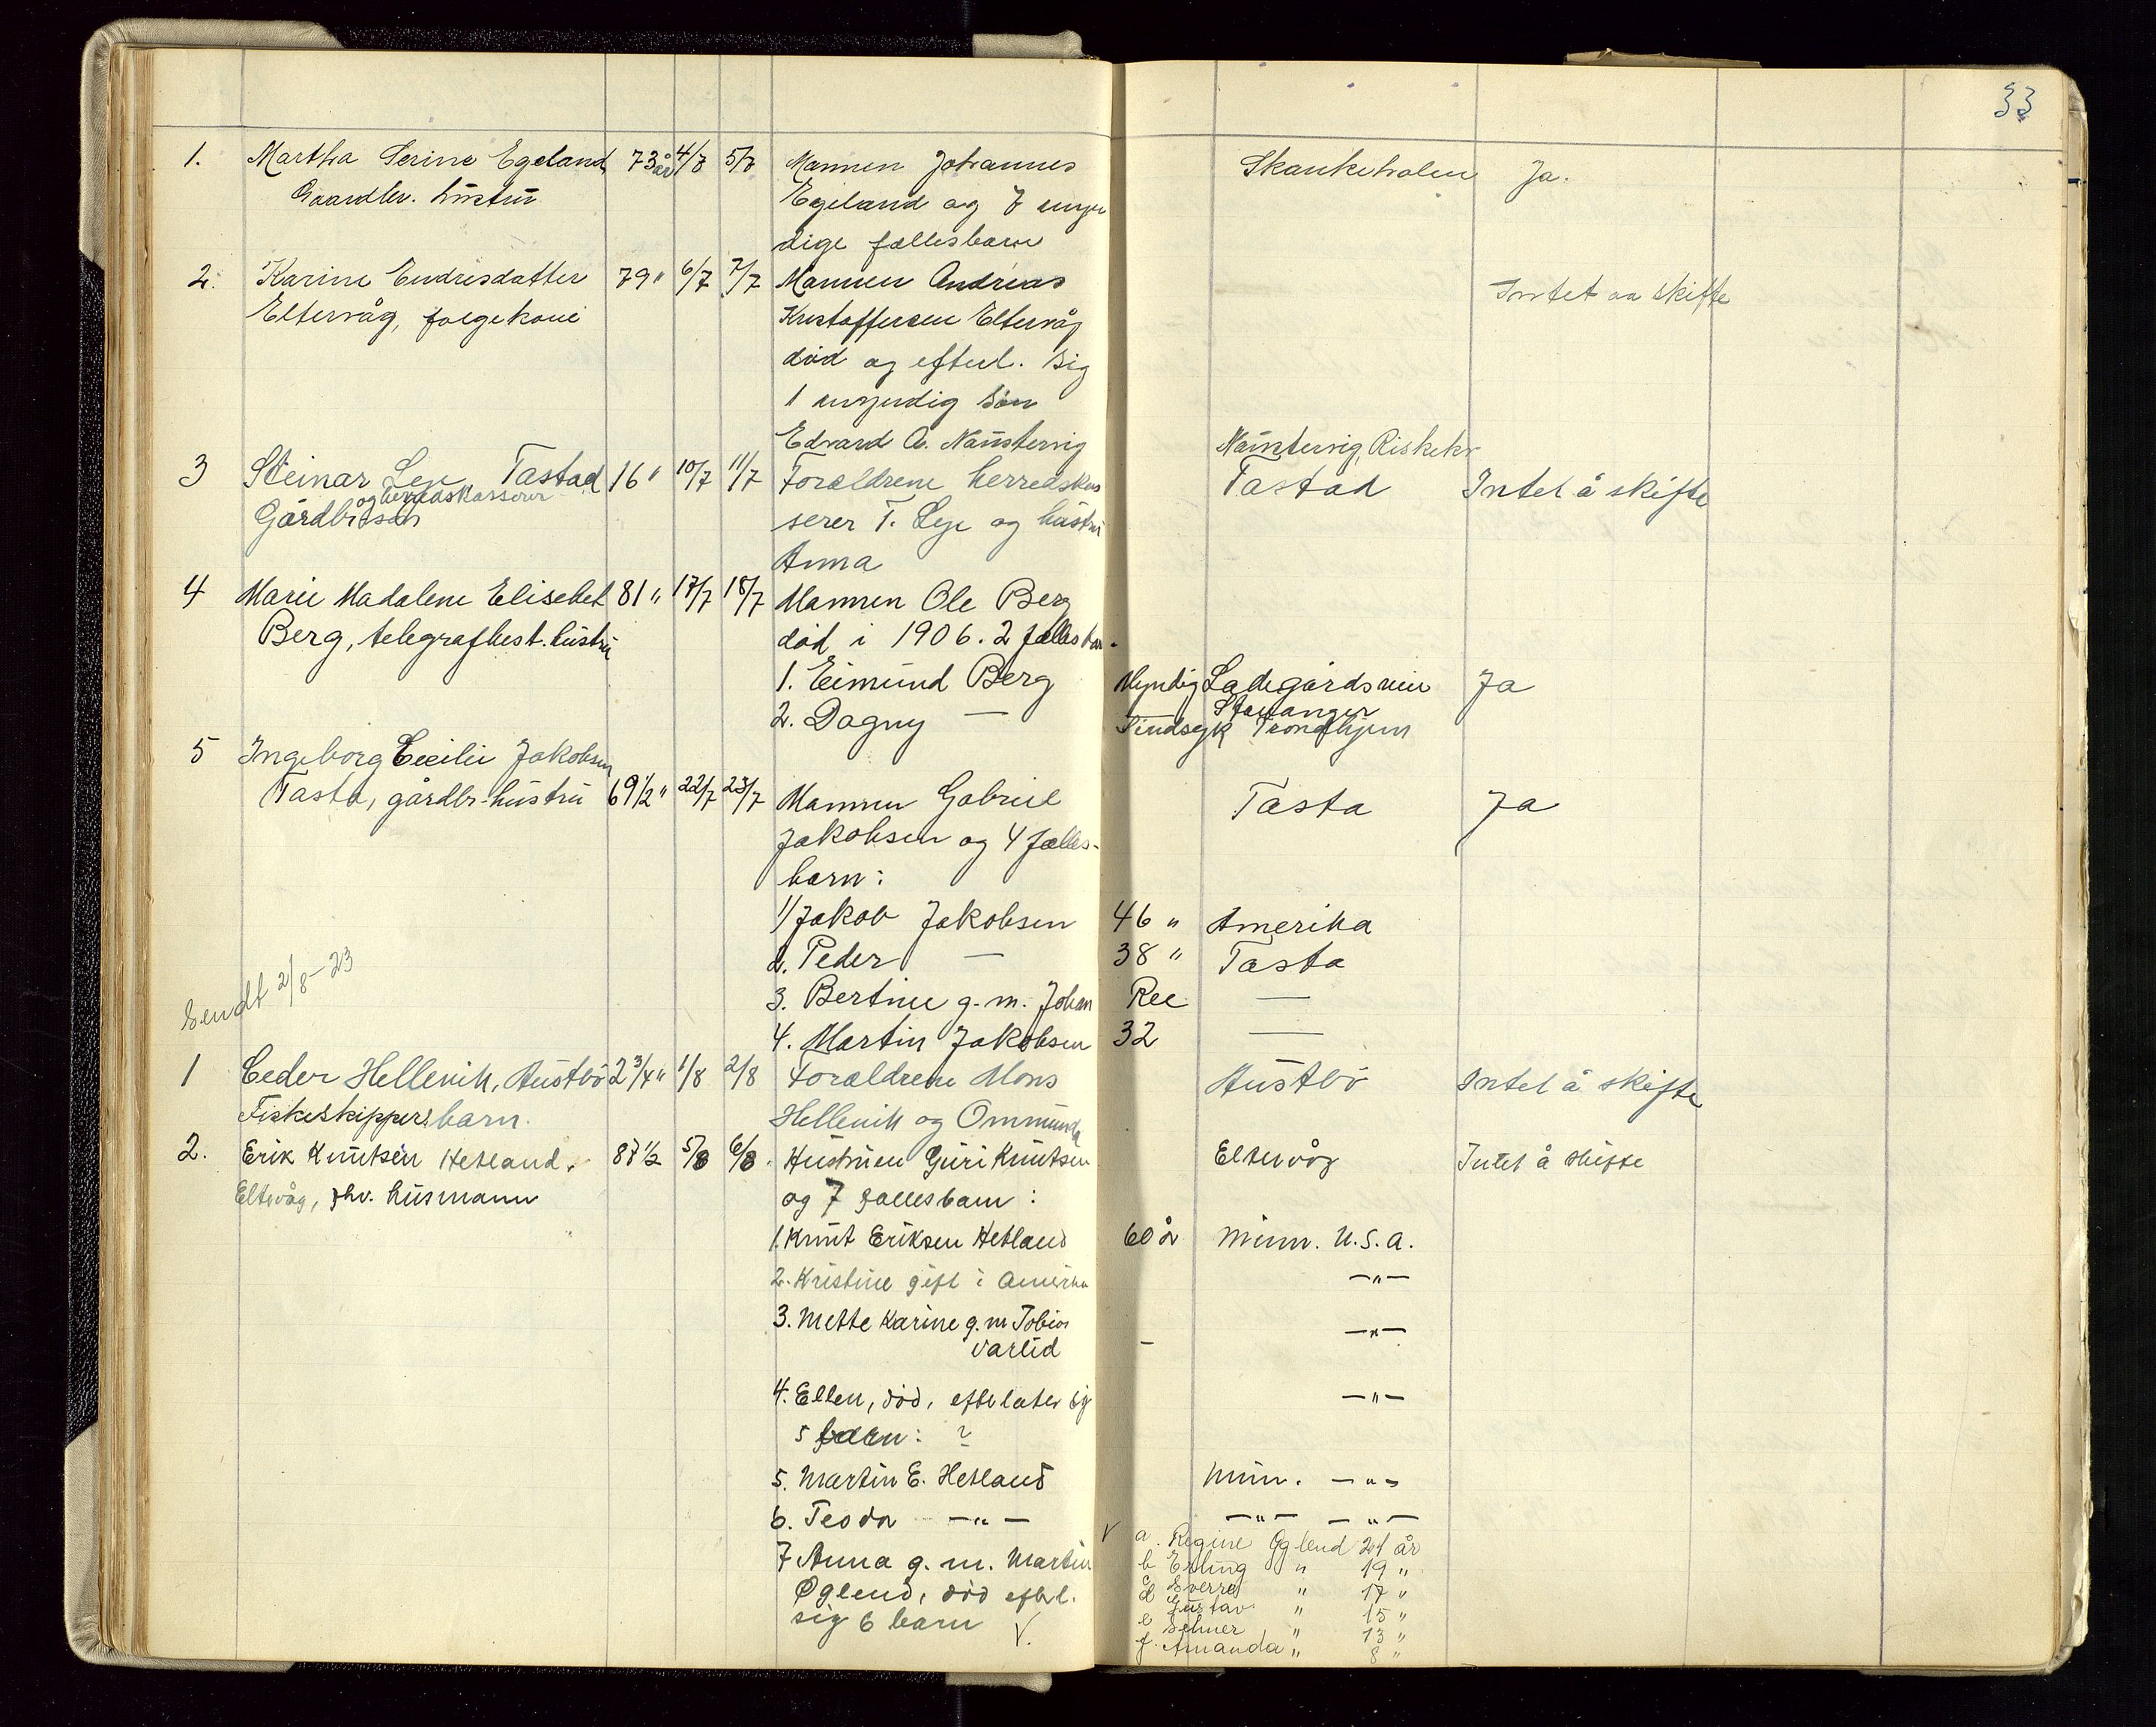 33
1. Martha Serine Egeland 73 år 4/7 5/7 Mannen Johannes Skankeholen Ja.
Gaardbr. hustru Egeland og 7 myn
dige fællesbarn
2. Karine Endresdatter 79 " 6/7 7/7 Mannen Andreas Intet aa skifte
Eltervåg, folgekone Kristoffersen Eltervåg
död og efterl. sig
1 myndig sön
Edvard A. Naustervig Naustervig, Riskekv
3 Steinar Leye, Tastad 16 " 10/7 11/7 Forældrene herredskas Tastad Intet å skifte
og herredskasserer
Gårdbr. sön serer T. Leye og hustru
Anna
4 Marie Madalene Elisebet 81 " 17/7 18/7 Mannen Ole Berg
Berg, telegrafbest. hustru död i 1906. 2 fællesbarn.
1. Eimund Berg Myndig Ladegårdsveien Ja
Stavanger
2. Dagny — Sindsyk Trondhjem
5 Ingeborg Cecilie Jakobsen
Tasta, gårdbr-hustru 69 1/2 " 22/7 23/7 Mannen Gabriel Tasta Ja
Jakobsen og 4 fælles-
barn:
1/ Jakob Jakobsen 46 " Amerika
2. Peder — 38 " Tasta
Sendt 2/8-23
3. Bertine g. m. Johan Ree —
4. Martin Jakobsen 32 —
1 Peder Hellevik, Austbö 2 3/4 " 1/8 2/8 Forældrene Mons Austbö Intet å skifte
Fiskeskippers barn. Hellevik og Ommunda
2. Erik Knutsen Hetland, 87 1/2 5/8 6/8 Hustruen Guri Knutsen Eltervåg Intet å skifte
Eltevåg, fhv. husmann og 7 fællesbarn:
1. Knut Eriksen Hetland 60 år Minn. U.S.A.
2. Kristine gift i Amerika —"—
3. Mette Karine g. m Tobias —"—
Varlid —
4. Ellen, död, efterlater sig —"—
5 barn: ?
5. Martin E. Hetland Minn. —"—
6. Teodor —"— —"— —"—
V a. Regine Øglend 21 år
7 Anna g. m. Martin b Erling " 19 "
c Sverre " 17 "
Øglend, död efterl. d Gustav " 15 "
sig 6 barn V. e Selmer " 13 "
f. Amanda " 8 "